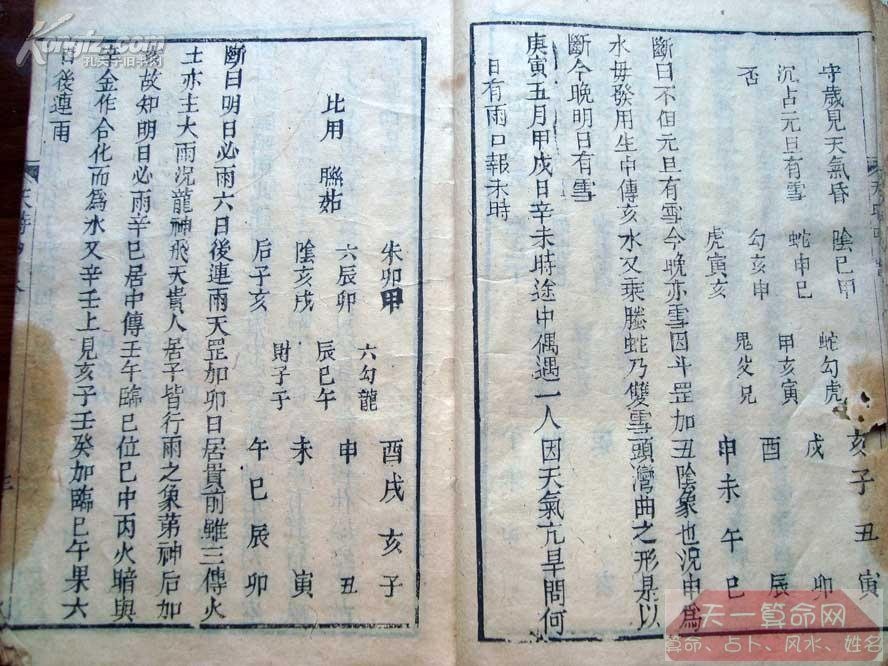 守歲見天氣昏 陰巳甲 蛇勾虎 亥子丑寅
沉占元旦有雪 蛇申巳 甲亥寅 戌 卯
勾亥申 酉 辰
否 虎寅亥 鬼父兄 申未午巳
斷曰不但元旦有雪今晚亦雪因斗罡加丑陰象也況申為
水毋發用生中傳亥水又乘螣蛇乃雙雪頭灣曲之形是以
斷今晚明日有雪
庚寅五月甲戊日辛未時途中偶遇一人因天氣亢旱問何
日有雨口報未時
朱卯甲 六勾龍 酉戌亥子
六辰卯 辰巳午 申 丑
比用 聯茹 陰亥戌 未 寅
后子亥 財子子 午巳辰卯
斷曰明日必雨六日後連雨天罡加卯日居貴前雖三傳火
土亦主大雨況龍神飛天貴人居子皆行雨之象第神后加
故知明日必雨辛巳居中傳壬午臨巳位巳中丙火暗與
辛金作合化而為水又辛壬上見亥子壬癸加臨巳午果六
日後連雨
天時
Kongfz.com
孔夫子旧书网
天一算命网
算命、占卜、风水、姓名